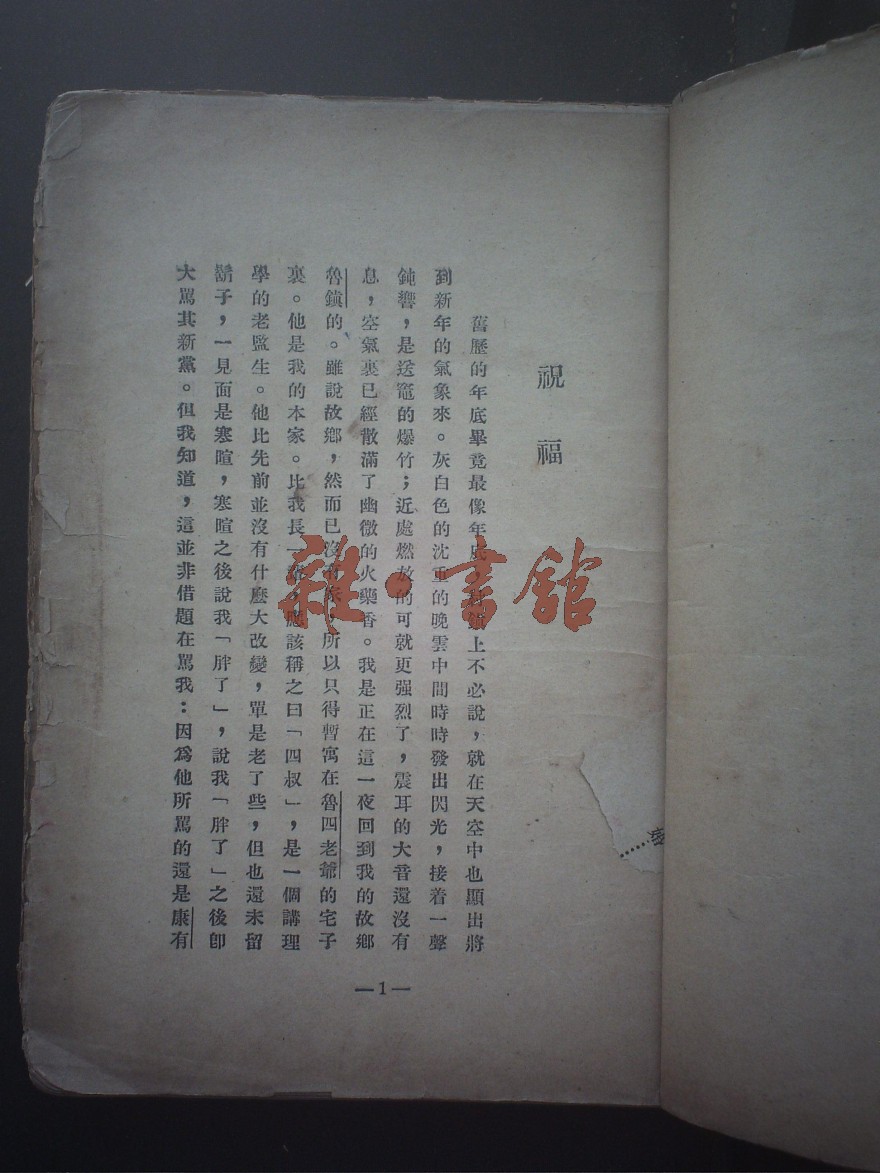 祝福
舊歷的年底畢竟最像年底，上不必說，就在天空中也顯出將
到新年的氣象來。灰白色的沈重的晚雲中間時時發出閃光，接着一聲
鈍響，是送竈的爆竹；近處燃放的可就更强烈了，震耳的大音還沒有
息，空氣裏已經散滿了幽微的火藥香。我是正在這一夜回到我的故鄉
魯鎭的。雖說故鄉，然而已沒有家，所以只得暫寓在魯四老爺的宅子
裏。他是我的本家。比我長一輩，應該稱之曰「四叔」，是一個講理
學的老監生。他比先前並沒有什麼大改變，單是老了些，但也還未留
鬍子，一見面是寒暄，寒暄之後說我「胖了」，說我「胖了」之後卽
大罵其新黨。但我知道，這並非借題在罵我：因爲他所罵的還是康有
—1—
雜·書館